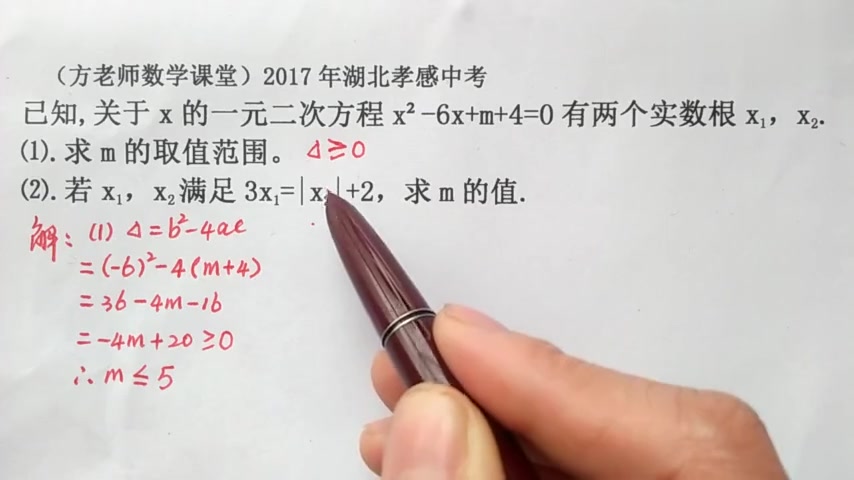 （方老师数学课堂）2017年湖北孝感中考
已知,关于x的一元二次方程x²-6x+m+4=0有两个实数根x₁，x₂.
⑴.求m的取值范围。 Δ≥0
⑵.若x₁，x₂满足3x₁=|x₂|+2，求m的值.
解：(1) Δ=b²-4ac
=(-6)²-4(m+4)
=36-4m-16
=-4m+20≥0
∴m≤5